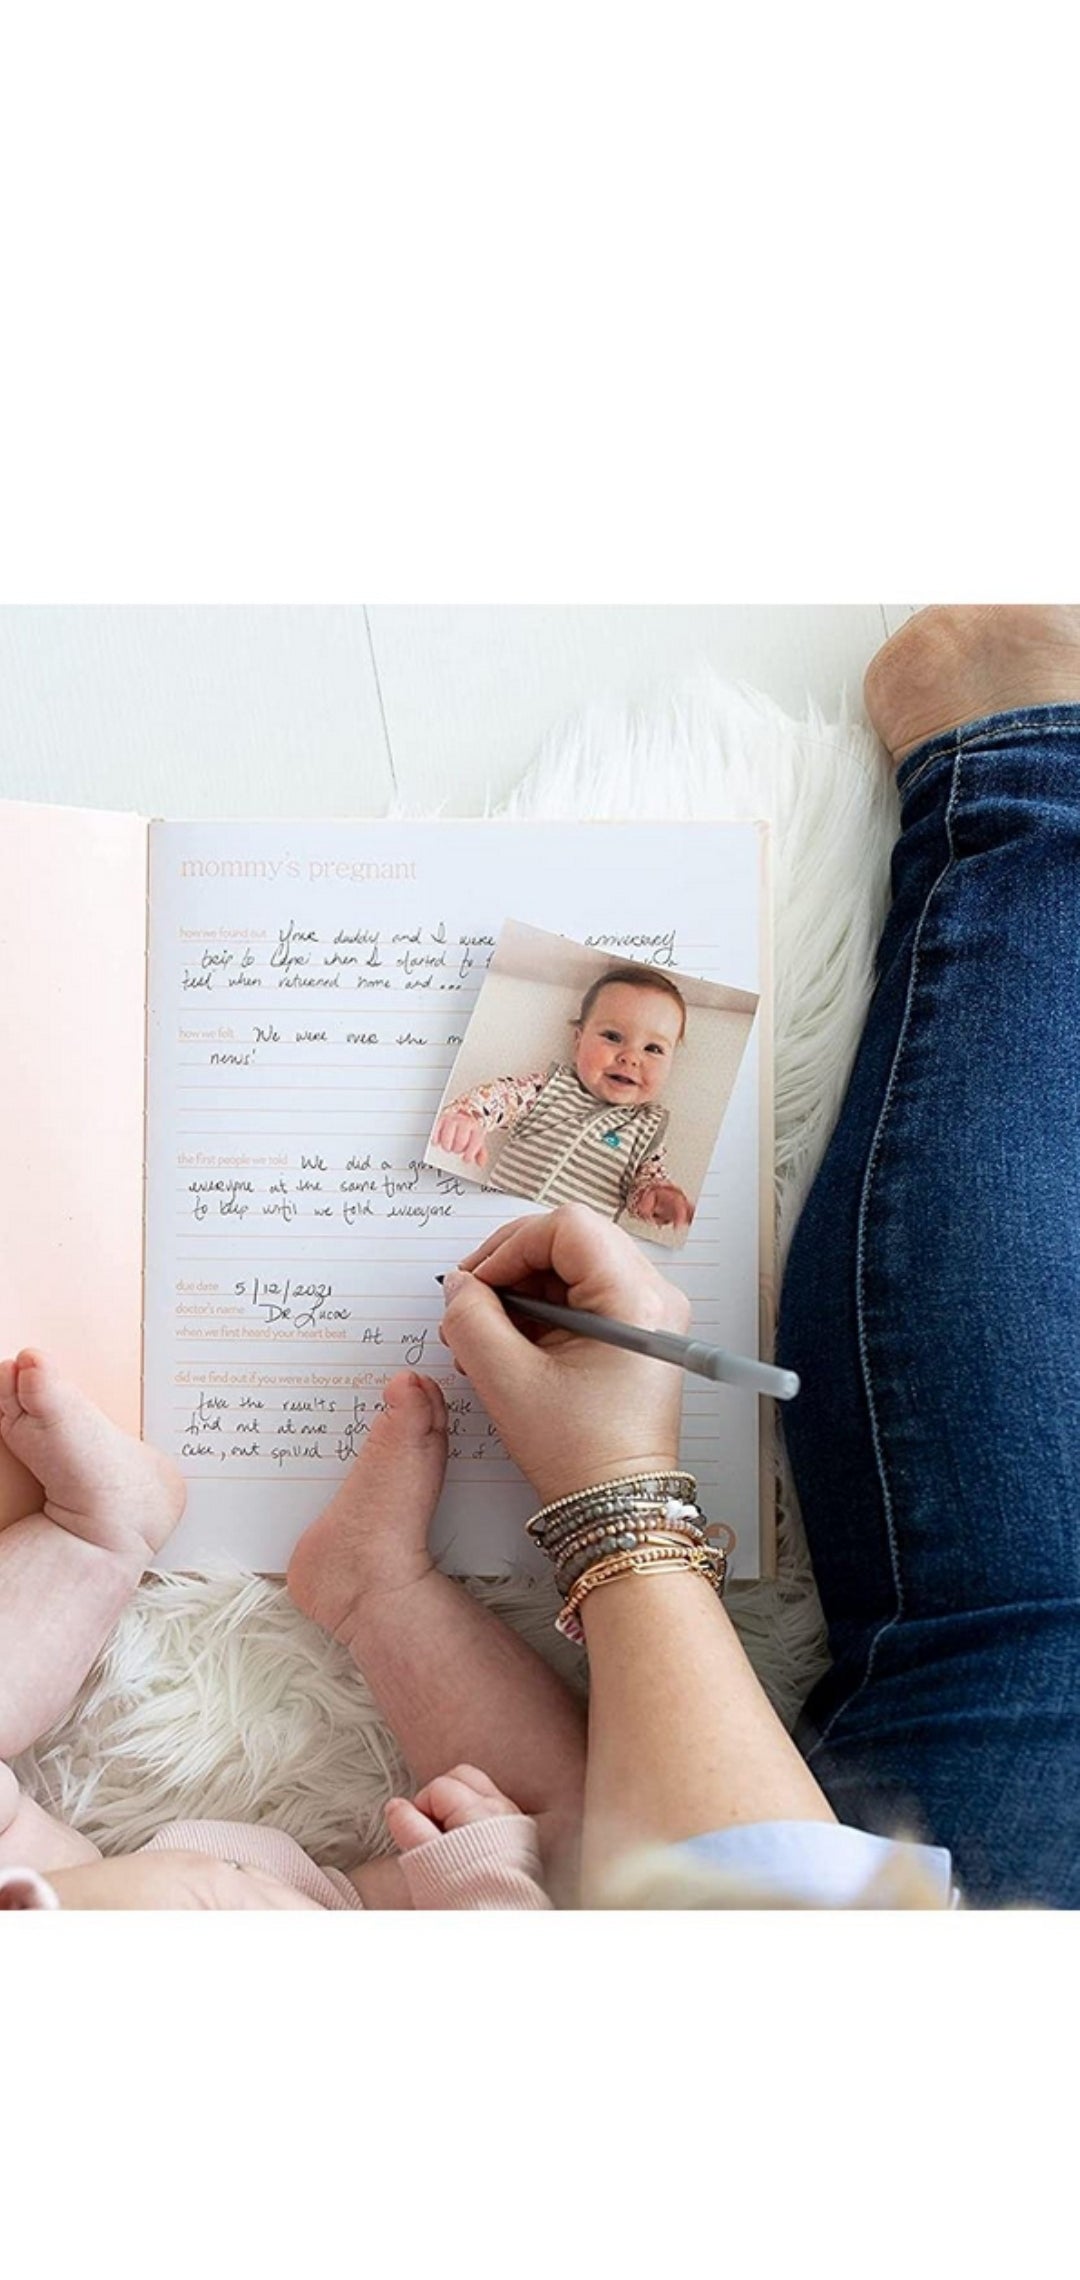 mommy's pregnant
how we found out Your daddy and I were anniversary
trip to Capri when I started to
test when returned home and...
how we felt We were over the
news!
the first people we told We did a
everyone at the same time. It
to keep until we told everyone
due date 5/12/2021
doctor's name Dr Lucas
when we first heard your heart beat At my
did we find out if you were a boy or a girl?
take the results to
find out at our
cake, out spilled of